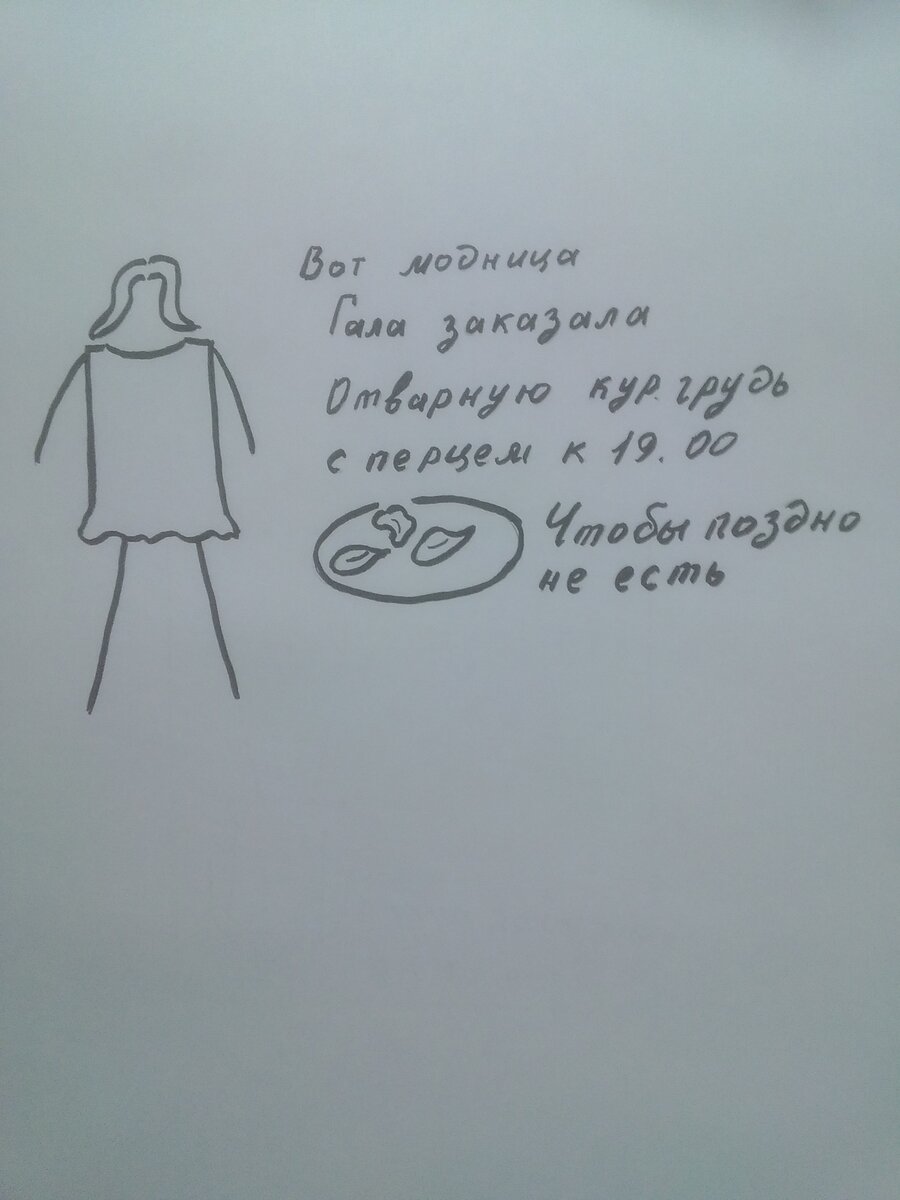 Вот модница
Гала заказала
Отварную кур. грудь
с перцем к 19.00
Чтобы поздно
не есть